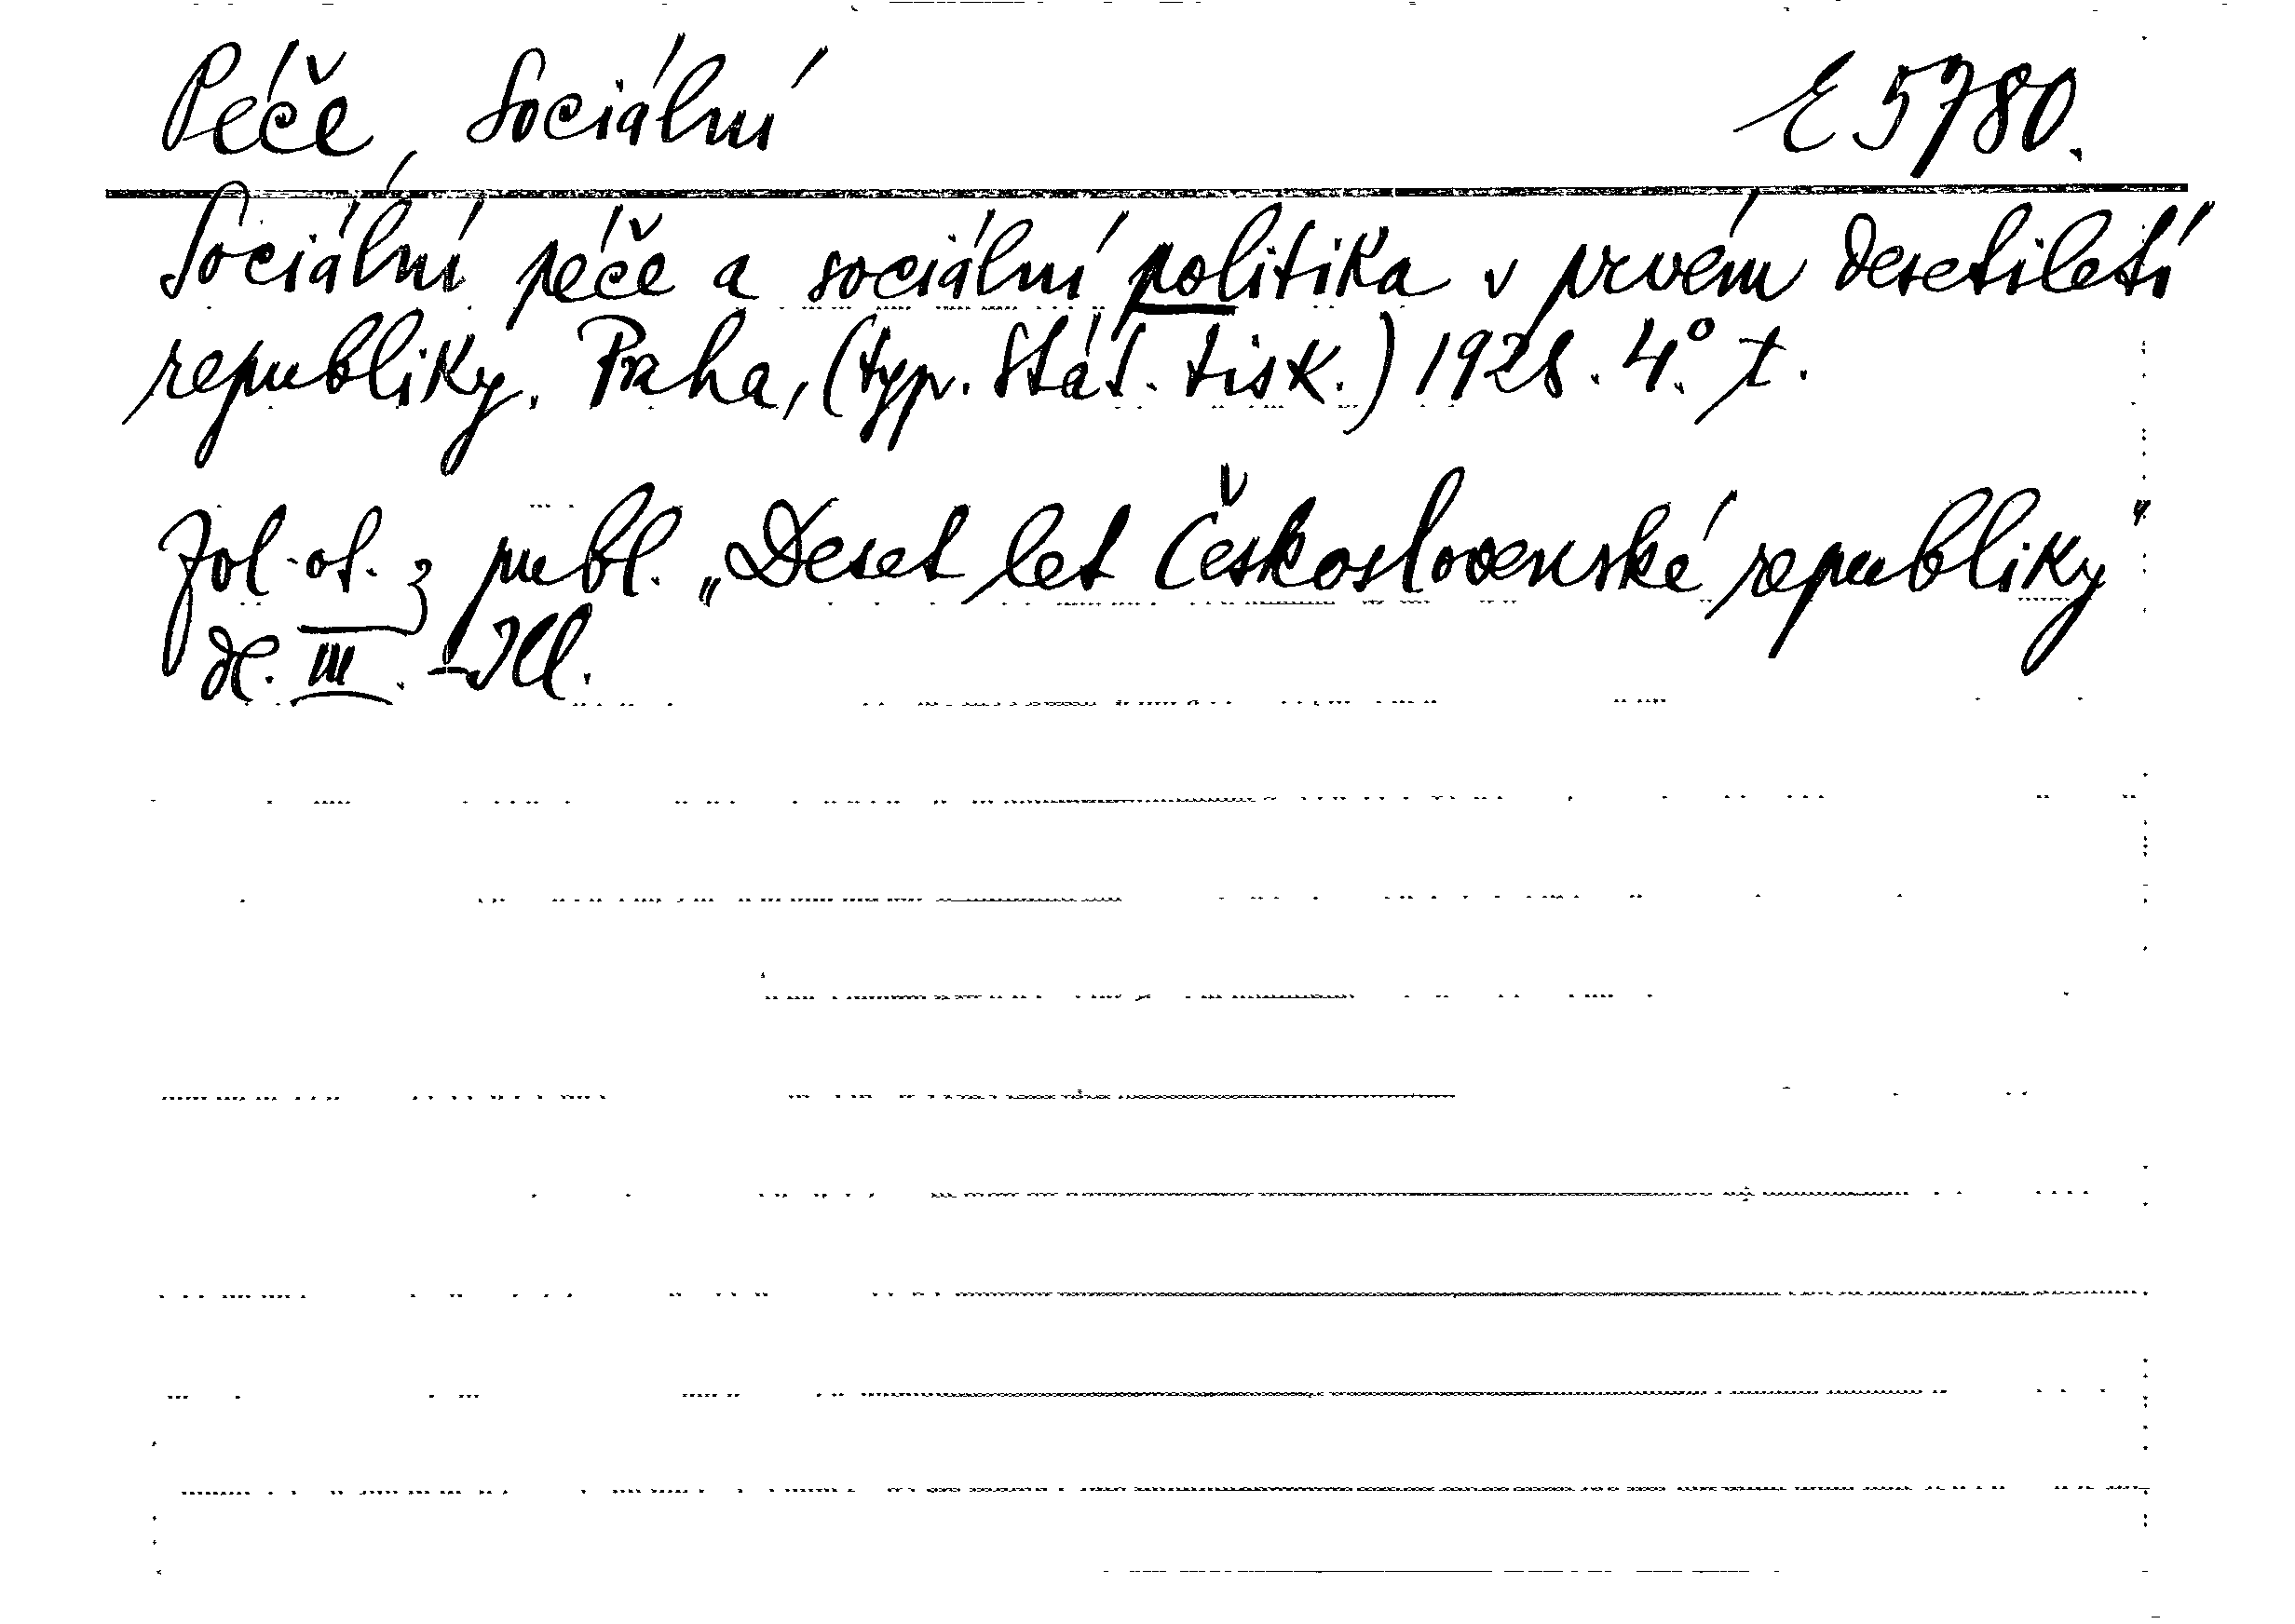 Péče, Sociální E 5780.
Sociální péče a sociální politika v prvém desetiletí
republiky. Praha, (typ. Stát. tisk.) 1928. 4.° t.
Zvl. ot. z publ. „Deset let Československé republiky"
dl. III. - Ill.